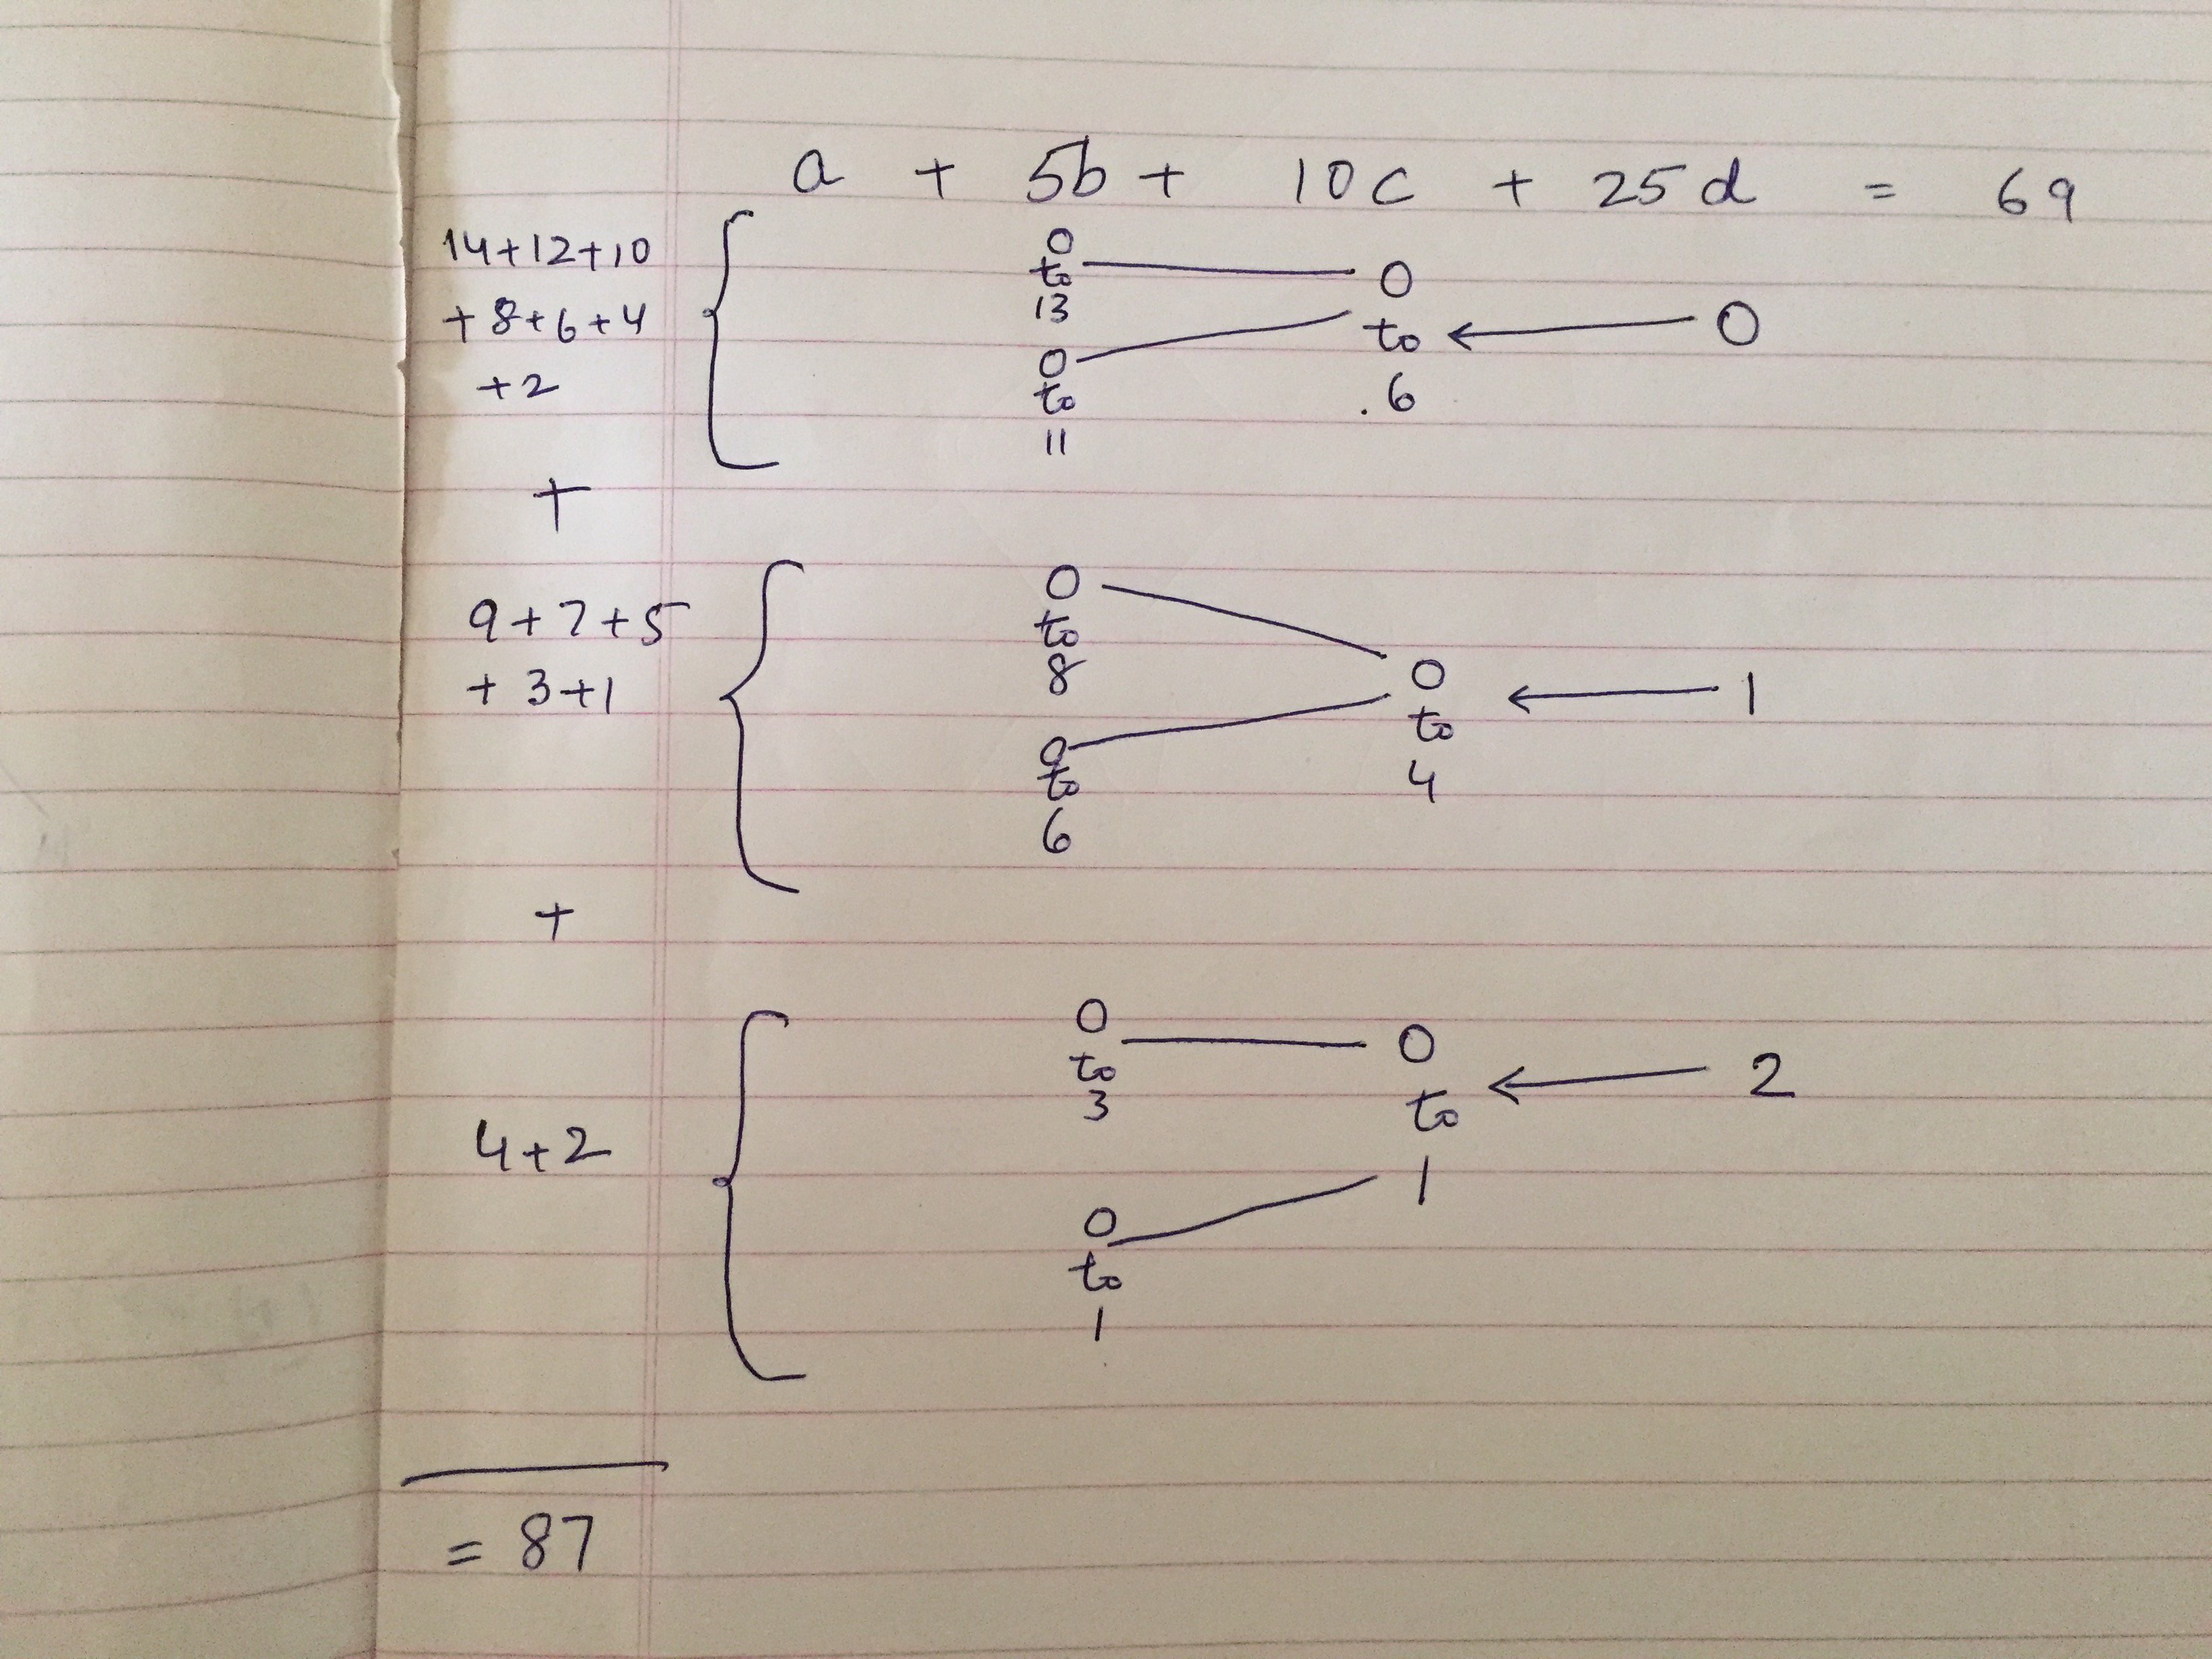 a + 5b + 10c + 25d = 69
14+12+10
+ 8+6+4
+2
0
to
13
0
to
11
0
to
6
0
+
9+7+5
+ 3+1
0
to
8
0
to
6
0
to
4
1
+
4+2
0
to
3
0
to
1
0
to
1
2
= 87